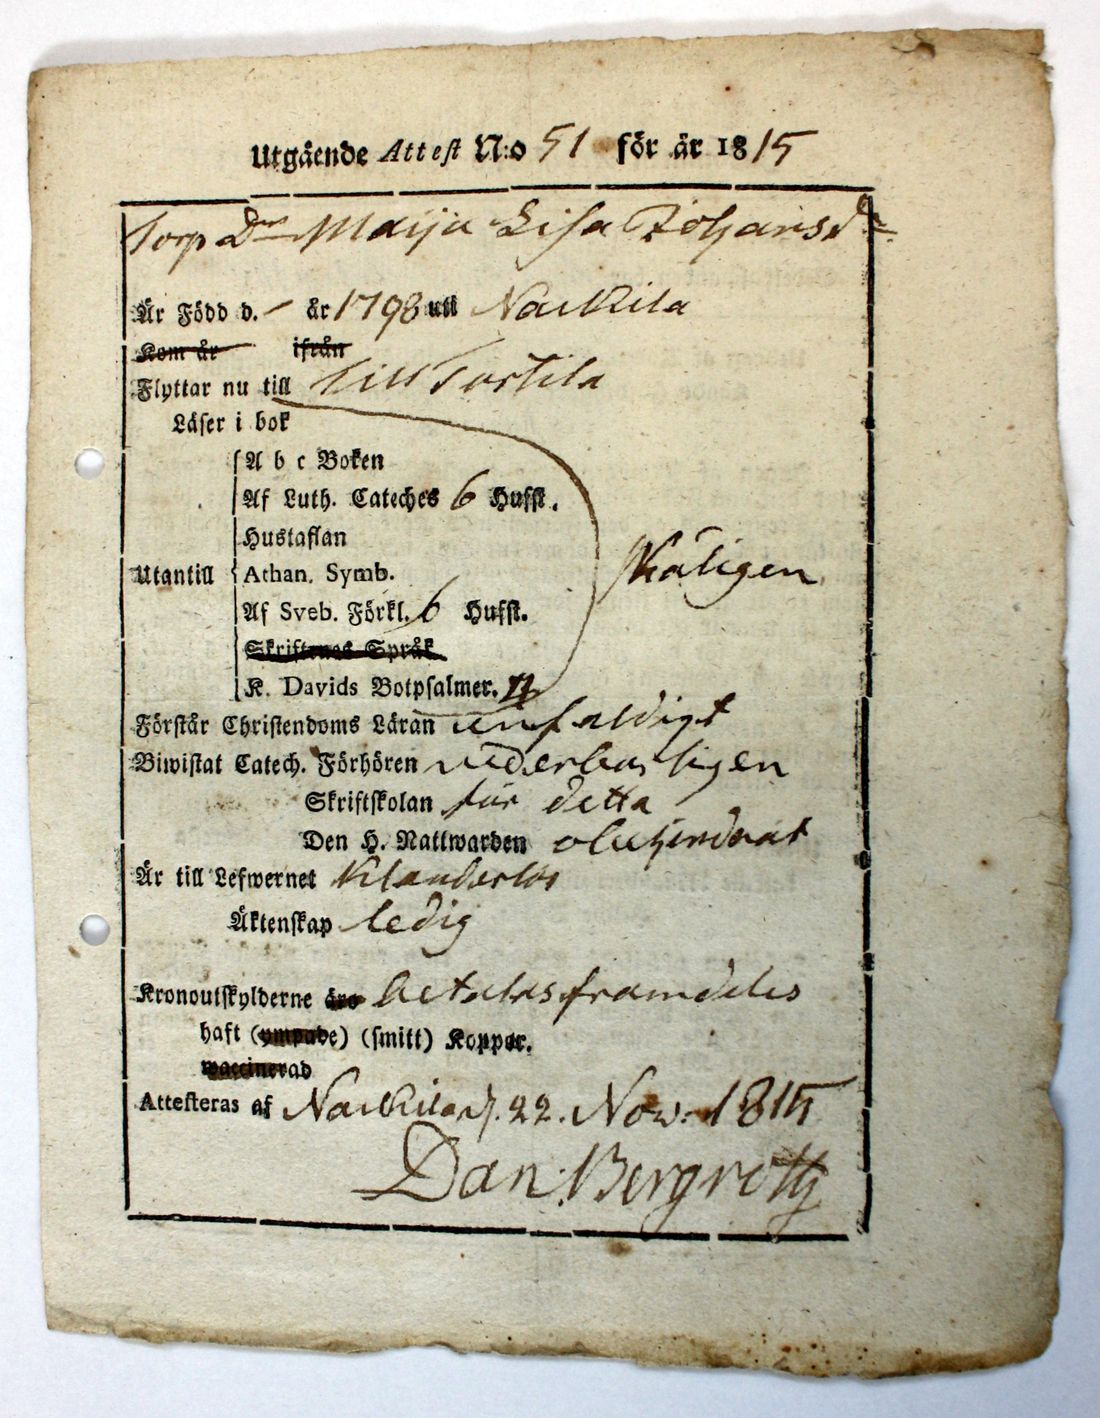 Utgående Attest N:o 51 för år 1815
Torp Dr Maija Lisa Johansdr
Är Född d. – år 1798 uti Nakkila
Kom år ifrån
Flyttar nu till till Tortila
Läser i bok
A b c Boken
Af Luth. Cateches 6 Hufst.
Hustaflan
Utantill Athan. Symb. skäligen
Af Sveb. Förkl. 6 Hufst.
Skriftenes Språk
K. Davids Botpsalmer.
Förstår Christendoms Läran enfaldigt
Biwistat Catech. Förhören wederbörligen
Skriftskolan för detta
Den H. Nattwarden obehindrat
Är till Lefwernet klanderlös
Äktenskap ledig
Kronoutskylderne äro betalas framdeles
haft (ympade) (smitt) Koppor.
waccinerad
Attesteras af Nakkila d. 22. Nov. 1815
Dan. Bergroth